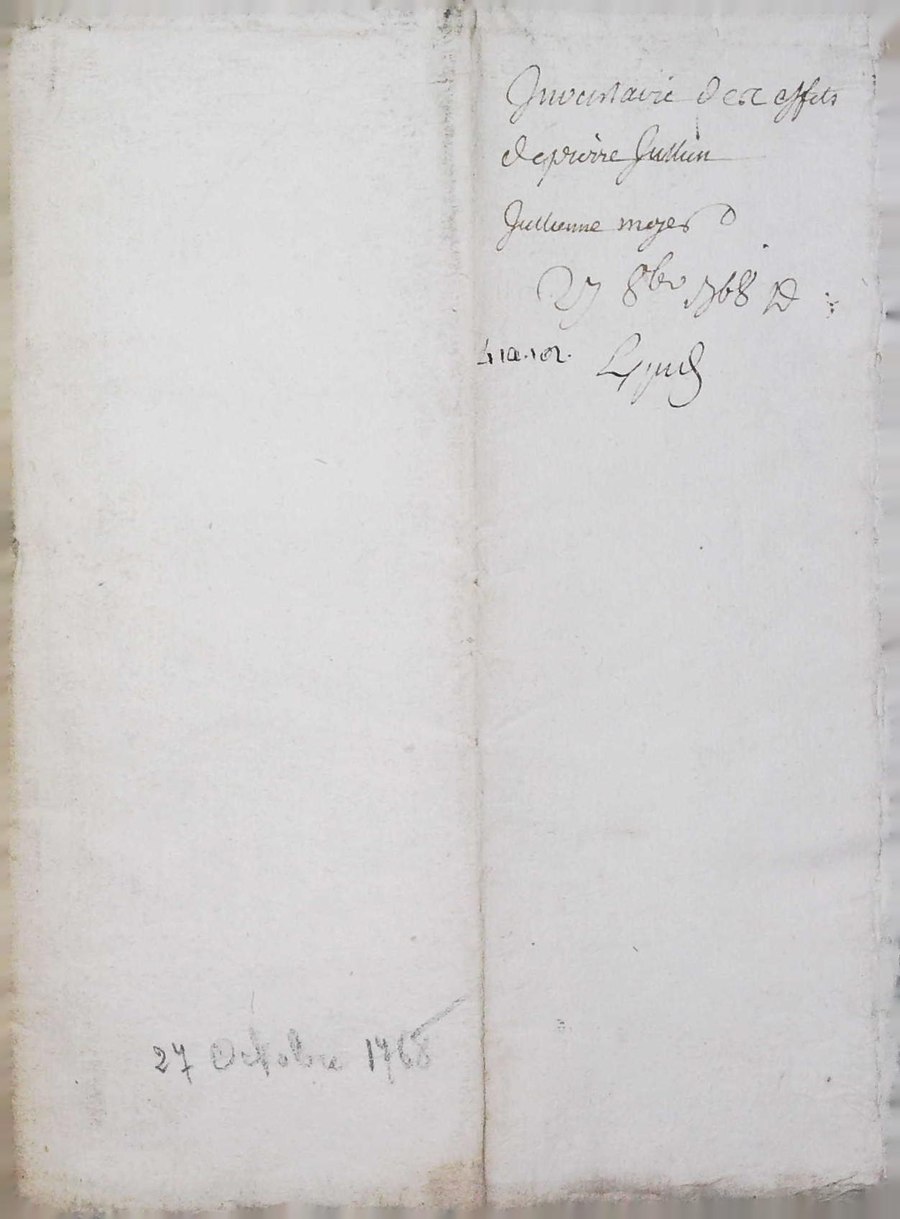 Inventaire des effets
de pierre Jullien
Jullienne moyer
27 8bre 1768
27 Octobre 1768